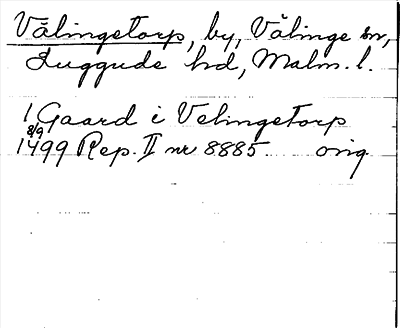 Välingetorp, by, Välinge sn,
Luggude hd, Malm. l.
1 Gaard i Velingetorp
8/9
1499 Rep. II nr 8885. orig.